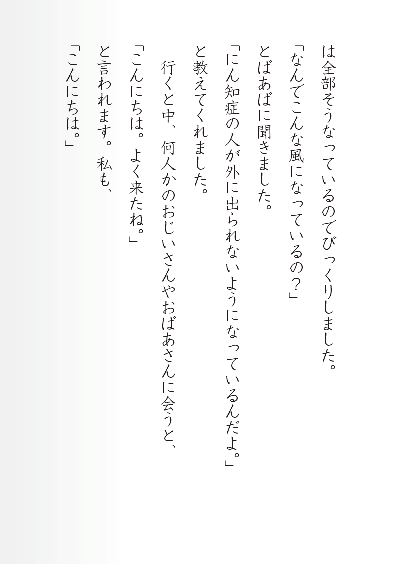 は全部そうなっているのでびっくりしました。
「なんでこんな風になっているの？」
とばあばに聞きました。
「にん知症の人が外に出られないようになっているんだよ。」
と教えてくれました。
行くと中、何人かのおじいさんやおばあさんに会うと、
「こんにちは。よく来たね。」
と言われます。私も、
「こんにちは。」